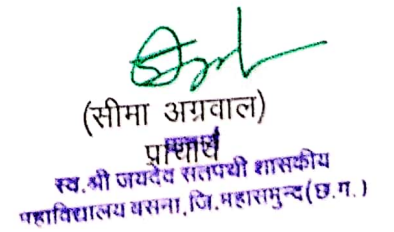 (सीमा अग्रवाल)
प्राचार्य
स्व.श्री जयदेव सतपथी शासकीय
महाविद्यालय बसना,जि.महासमुन्द(छ.ग.)